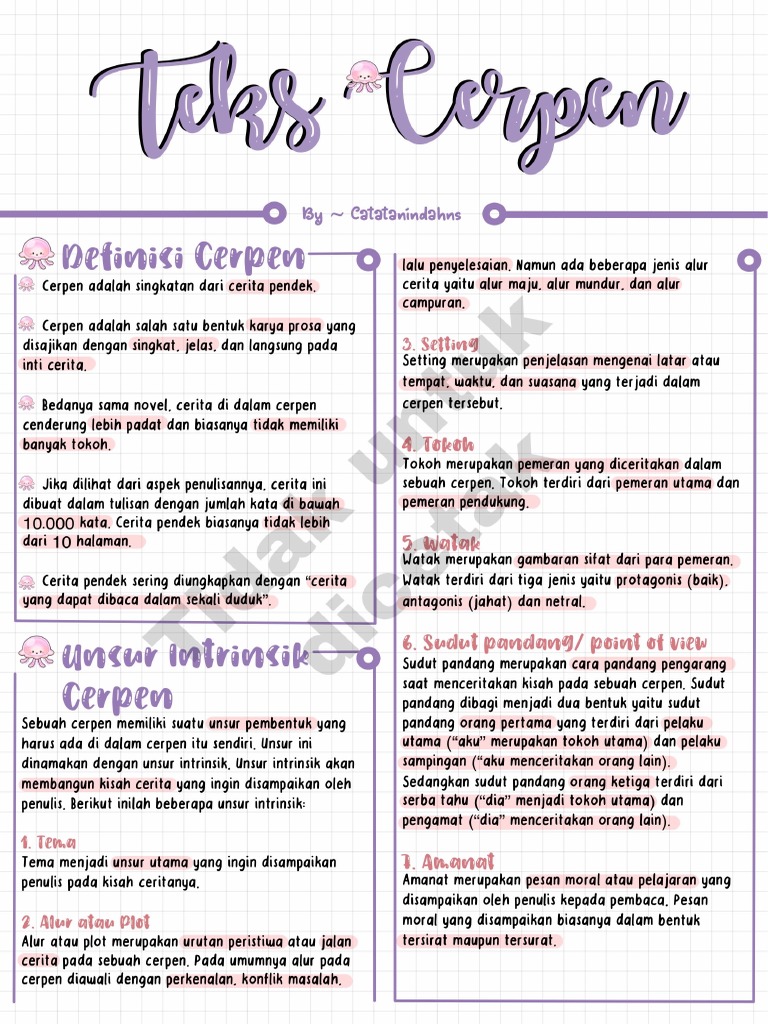 Teks Cerpen
By ~ Catatanindahns
Definisi Cerpen
Cerpen adalah singkatan dari cerita pendek.
Cerpen adalah salah satu bentuk karya prosa yang
disajikan dengan singkat, jelas, dan langsung pada
inti cerita.
Bedanya sama novel, cerita di dalam cerpen
cenderung lebih padat dan biasanya tidak memiliki
banyak tokoh.
Jika dilihat dari aspek penulisannya, cerita ini
dibuat dalam tulisan dengan jumlah kata di bawah
10.000 kata. Cerita pendek biasanya tidak lebih
dari 10 halaman.
Cerita pendek sering diungkapkan dengan “cerita
yang dapat dibaca dalam sekali duduk”.
Unsur Intrinsik
Cerpen
Sebuah cerpen memiliki suatu unsur pembentuk yang
harus ada di dalam cerpen itu sendiri. Unsur ini
dinamakan dengan unsur intrinsik. Unsur intrinsik akan
membangun kisah cerita yang ingin disampaikan oleh
penulis. Berikut inilah beberapa unsur intrinsik:
1. Tema
Tema menjadi unsur utama yang ingin disampaikan
penulis pada kisah ceritanya.
2. Alur atau Plot
Alur atau plot merupakan urutan peristiwa atau jalan
cerita pada sebuah cerpen. Pada umumnya alur pada
cerpen diawali dengan perkenalan, konflik masalah,
lalu penyelesaian. Namun ada beberapa jenis alur
cerita yaitu alur maju, alur mundur, dan alur
campuran.
3. Setting
Setting merupakan penjelasan mengenai latar atau
tempat, waktu, dan suasana yang terjadi dalam
cerpen tersebut.
4. Tokoh
Tokoh merupakan pemeran yang diceritakan dalam
sebuah cerpen. Tokoh terdiri dari pemeran utama dan
pemeran pendukung.
5. Watak
Watak merupakan gambaran sifat dari para pemeran.
Watak terdiri dari tiga jenis yaitu protagonis (baik),
antagonis (jahat) dan netral.
6. Sudut pandang/ point of view
Sudut pandang merupakan cara pandang pengarang
saat menceritakan kisah pada sebuah cerpen. Sudut
pandang dibagi menjadi dua bentuk yaitu sudut
pandang orang pertama yang terdiri dari pelaku
utama (“aku” merupakan tokoh utama) dan pelaku
sampingan (“aku menceritakan orang lain).
Sedangkan sudut pandang orang ketiga terdiri dari
serba tahu (“dia” menjadi tokoh utama) dan
pengamat (“dia” menceritakan orang lain).
7. Amanat
Amanat merupakan pesan moral atau pelajaran yang
disampaikan oleh penulis kepada pembaca. Pesan
moral yang disampaikan biasanya dalam bentuk
tersirat maupun tersurat.
Tidak untuk
dicetak